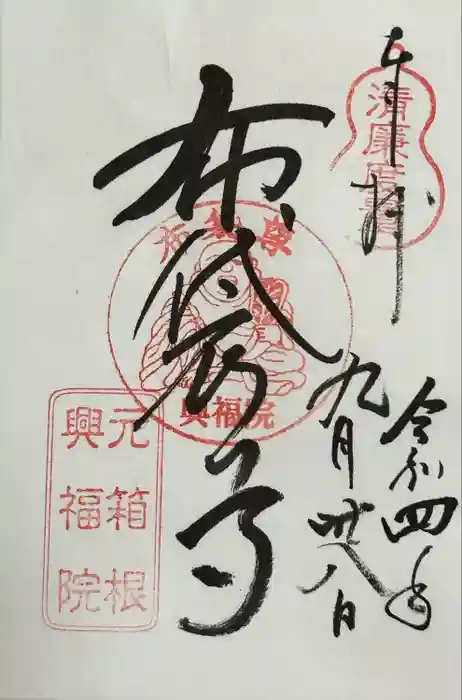 奉拝
清廉度量
布袋尊
興福院
令和四年
九月廿八日
元箱根
興福院